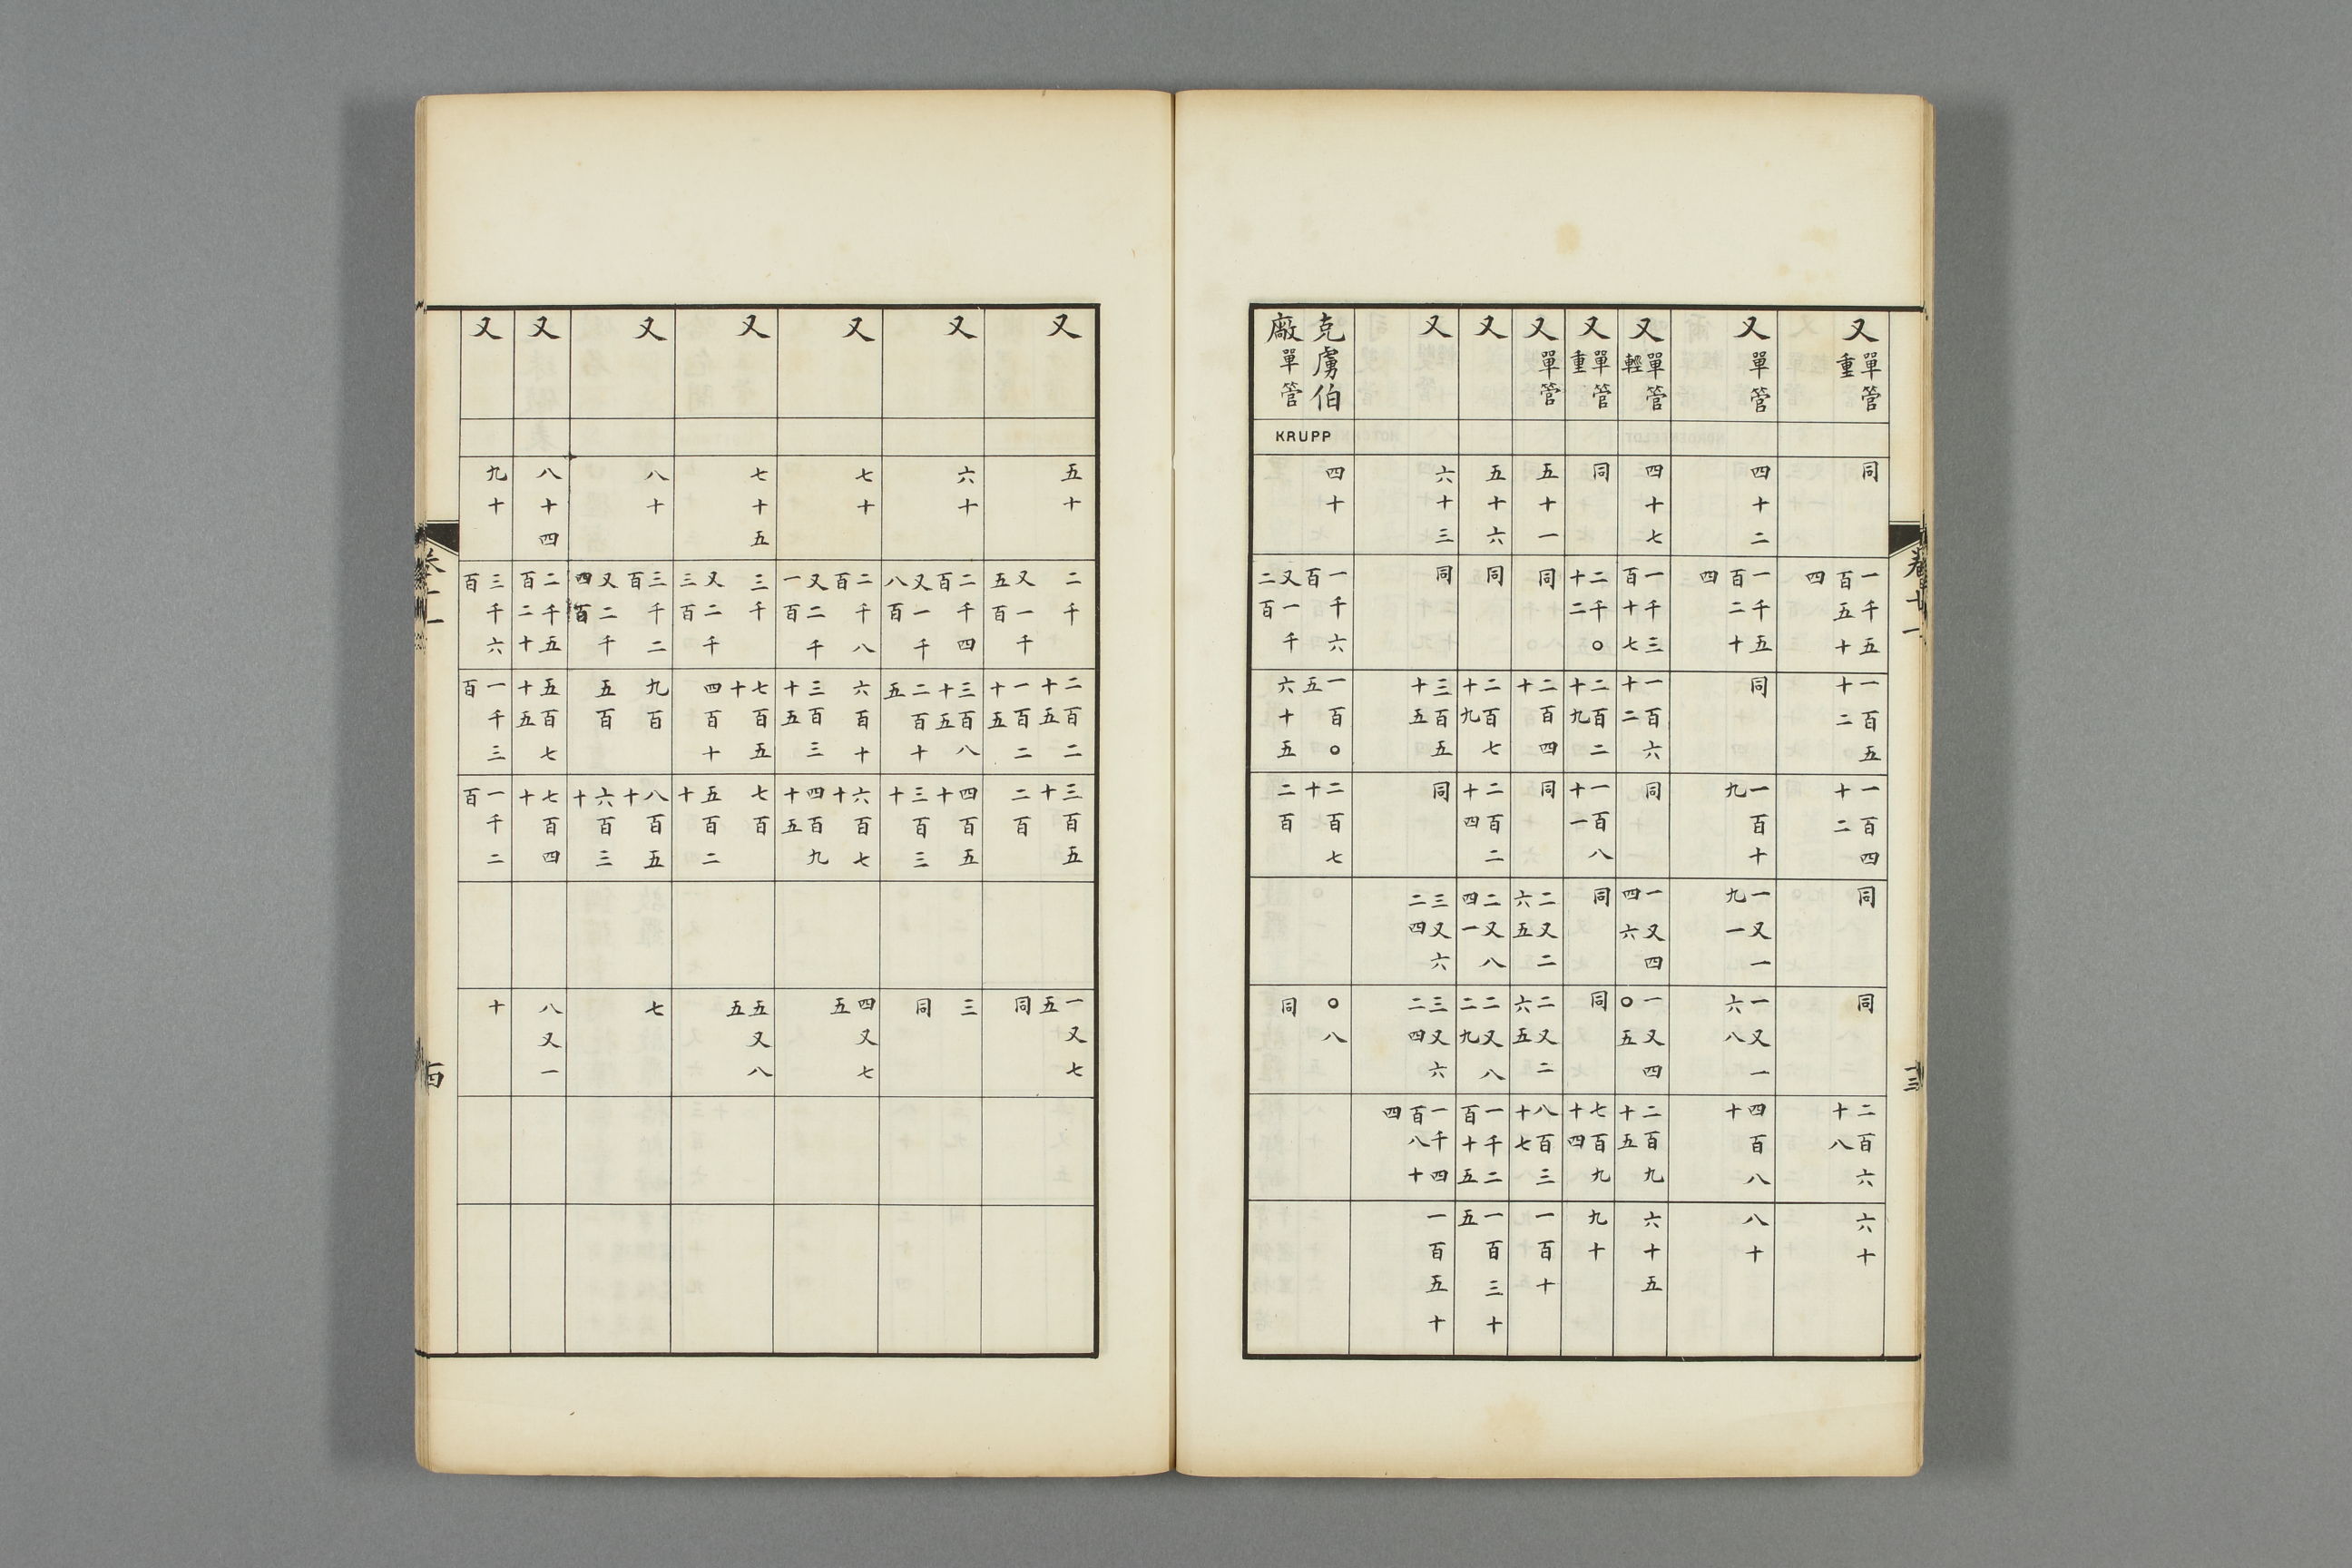 卷十一
十三
又單管重 同 一千五百五十四 一百五十二 一百四十二 同 同 二百六十八 六十
又單管 四十二 一千五百二十四 同 一百十九 一又一九一 一又一六八 四百八十 八十
又單管輕 四十七 一千三百十七 一百六十二 同 一又四四六 一又四〇五 二百九十五 六十五
又單管重 同 二千〇十二 二百二十九 一百八十一 同 同 七百九十四 九十
又單管 五十一 同 二百四十 同 二又二六五 二又二六五 八百三十七 一百十
又 五十六 同 二百七十九 二百二十四 二又八四一 二又八二九 一千二百十五 一百三十五
又 六十三 同 三百五十五 同 三又六二四 三又六二四 一千四百八十四 一百五十
克虜伯廠單管 KRUPP 四十 一千六百 又一千二百 一百〇五 六十五 二百七十 二百 〇八 同
又 五十 二千 又一千五百 二百二十五 一百二十五 三百五十 二百 一又七五 同
又 六十 二千四百 又一千八百 三百八十五 二百十五 四百五十 三百三十 三 同
又 七十 二千八百 又二千一百 六百十 三百三十五 六百七十 四百九十五 四又七五
又 七十五 三千 又二千三百 七百五十 四百十 七百 五百二十 五又八五
又 八十 三千二百 又二千四百 九百 五百 八百五十 六百三十 七
又 八十四 二千五百二十 五百七十五 七百四十 八又一
又 九十 三千六百 一千三百 一千二百 十